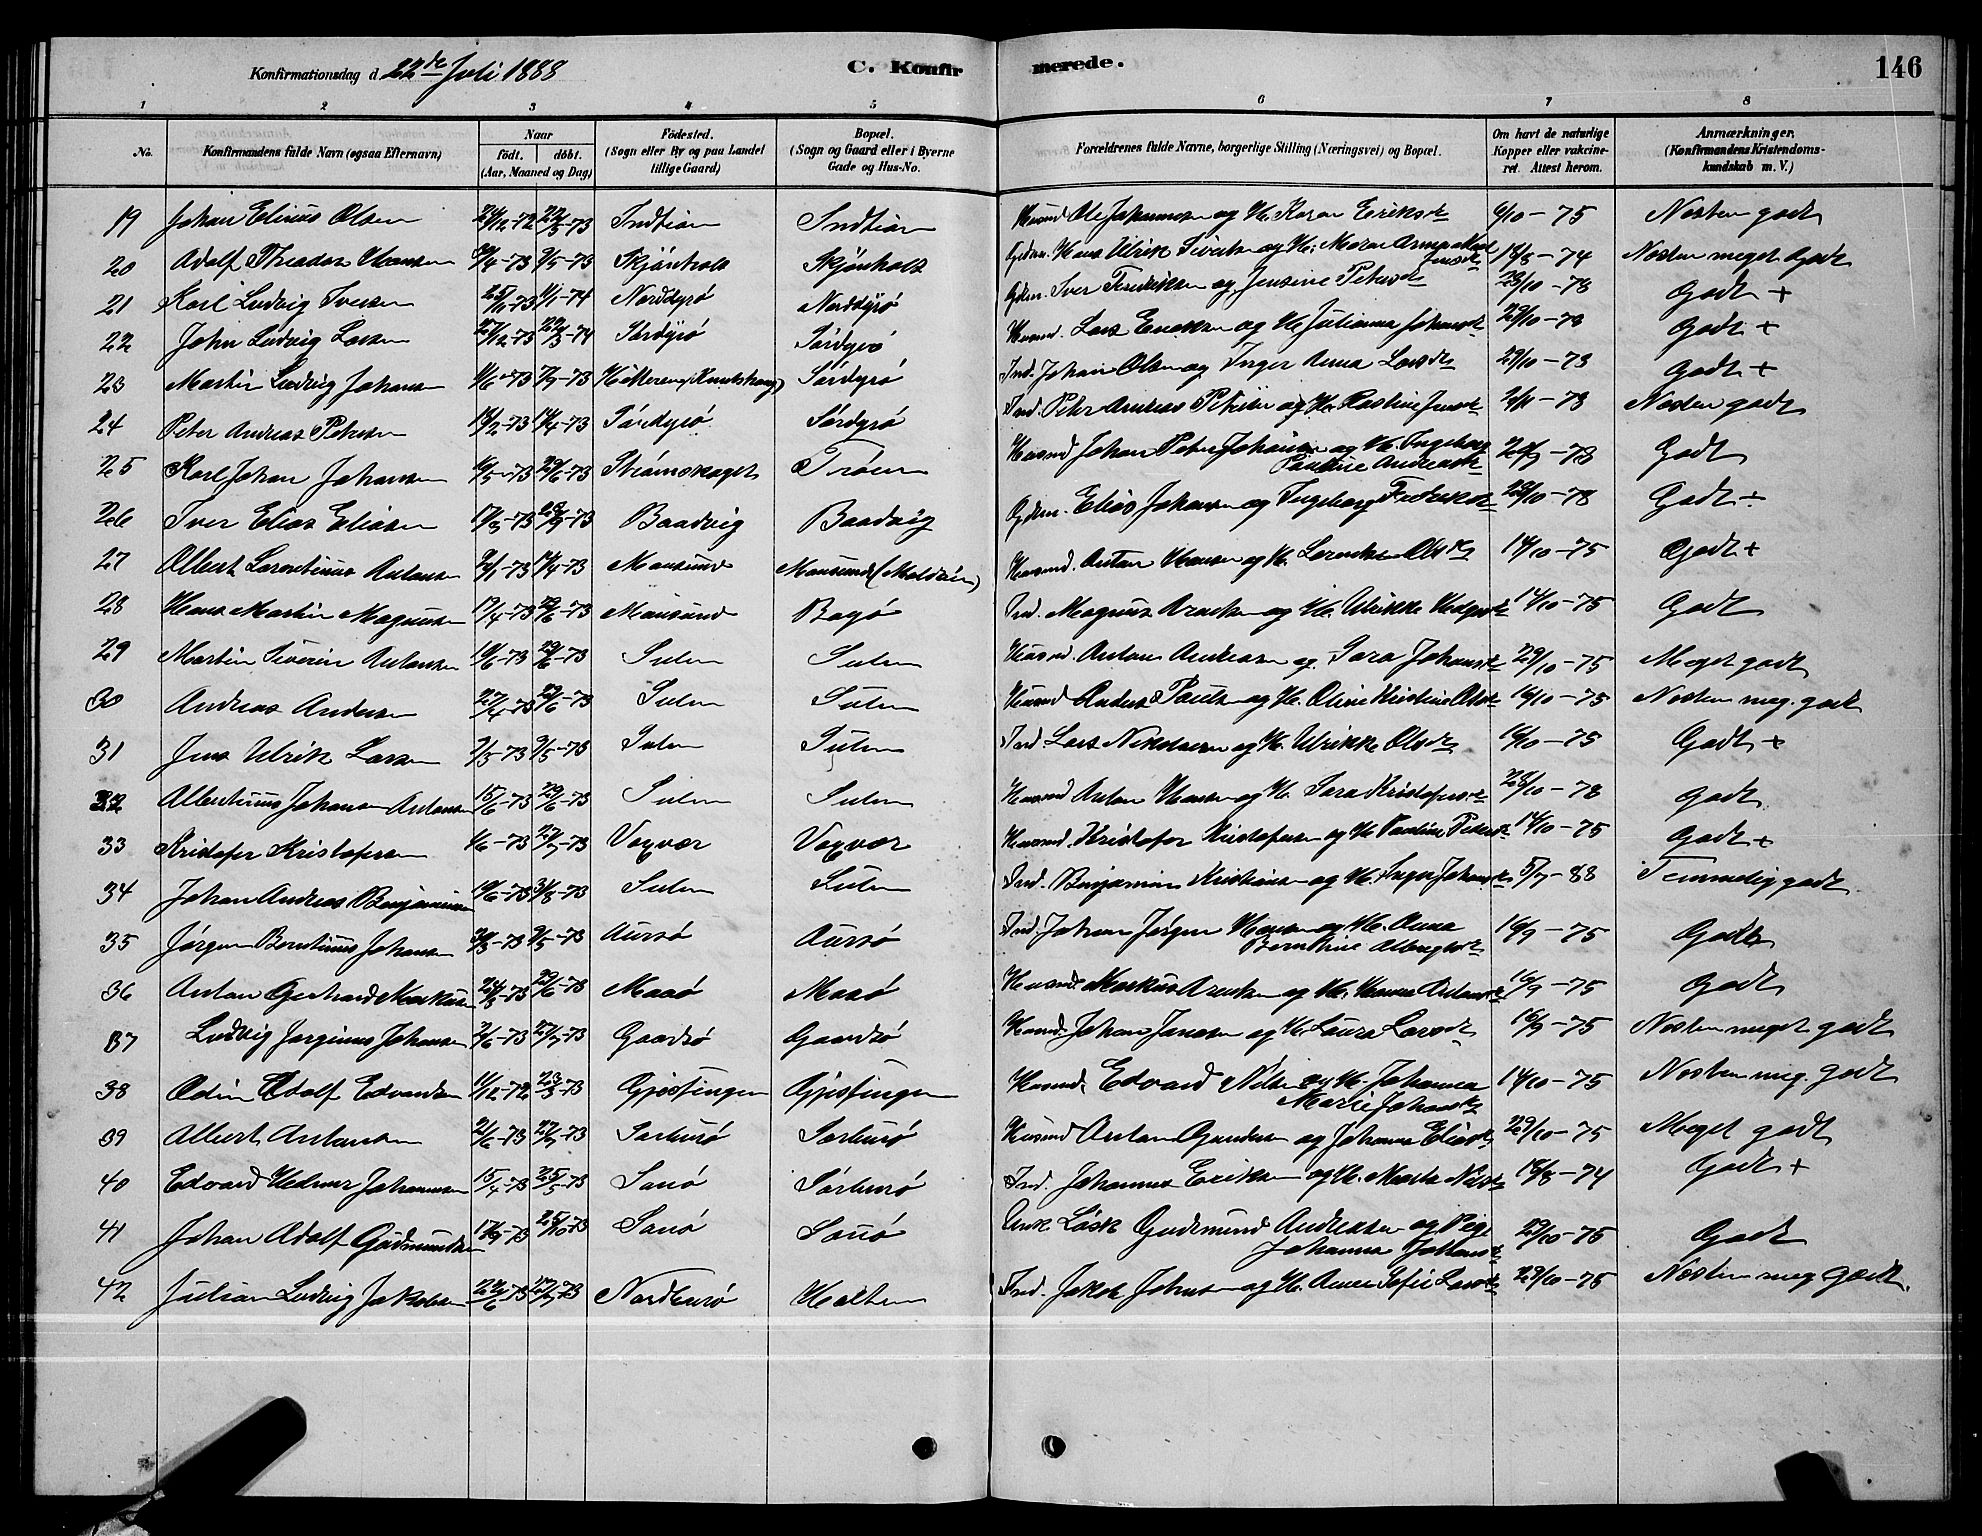 Konfirmationsdag d. 22de Juli 1888 C. Konfirmerede. 146
1 2 3 4 5 6 7 8
No. Konfirmandens fulde Navn (ogsaa Efternavn) Naar födt. döbt. (Aar, Maaned og Dag) Födested. (Sogn eller By og paa Landet tillige Gaard) Bopæl. (Sogn og Gaard eller i Byerne Gade og Hus-No. Forældrenes fulde Navne, borgerlige Stilling (Næringsvei) og Bopæl. Om havt de naturlige Kopper eller vakcineret. Attest herom. Anmærkninger. (Konfirmandens Kristendomskundskab m. V.)
19 Johan Elinus Olsen 24/12-72 22/3-73 Indtian Indtian Husmd Ole Johannesen og H. Karen Eriksdt 6/10-75 Nesten godt
20 Adolf Theodor Hansen Skjönhals Skjönhals Gdm. Hans Ulrik Sivertsen og H. Maren Anna 14/8-74 Nesten meget Godt
21 Karl Ludvig Iversen 25/11-73 1/1-74 Norddyrö Norddyrö Gdm. Iver Fredriksen og Jensine Petersdt 23/10-78 Godt +
22 John Ludvig Larsen 27/12-73 22/3-74 Sördyrö Sördyrö Husmd. Lars Eriksen og H. Julianna Johansdt 23/10-78 Godt +
23 Martin Ludvig Johansen 1/6-73 7/7-73 Hitteren (Knutshaug) Sördyrö Ind. Johan Olsen og Inger Anna Larsdt 23/10-78 Godt +
24 Peter Andreas Petersen 14/2-73 14/4-73 Sördyrö Sördyrö Ind. Peter Andreas Petersen og H. Kastine Jensdt 2/11-78 Nesten godt
25 Karl Johan Johansen 4/5-73 29/6-73 Strömskaget Tröen Husmd Johan Peter Johansen og H. Ingeborg Pauline Andreasdt 24/9-78 Godt
26 Iver Elias Eliasen Baadvig Baadvig Gdm. Elias Johansen og Ingeborg Fredriksdt 23/10-78 Godt +
27 Albert Lorentinus Antonsen 9/1-73 14/4-73 Mausund Mausund Husmd. Anton Hansen og H. Lorentse Olsdt 14/10-75 Godt +
28 Hans Martin Magnusen 17/4-73 29/6-73 Mausund Bogö Ind. Magnus Arntsen og H. Ulrikke 14/10-75 Godt
29 Martin Severin Antonsen 14/6-73 29/6-73 Sulen Sulen Husmd. Anton Andreasen og Sara Johansdt 29/10-75 Meget godt
30 Andreas Andersen 27/4-73 29/6-73 Sulen Sulen Husmd Anders Paulsen og H. Oline Kristine Olsdt 16/10-75 Nesten meg. godt
31 Jens Ulrik Larsen 7/3-73 9/5-73 Sulen Sulen Ind Lars Nikolaisen og H. Ulrikke Olsdt 16/10-75 Godt +
32 Albertinus Johan Antonsen 15/6-73 29/6-73 Sulen Sulen Husmd Anton Hansen og H. Sara Kristofersdt 23/10-78 Godt
33 Kristofer Kristofersen 1/6-73 27/7-73 Vogvær Vogvær Husmd. Kristofer Kristofersen og H. Pauline Petersdt 14/10-75 Godt +
34 Johan Andreas Benjaminsen 10/6-73 3/8-73 Sulen Sulen Ind. Benjamin Kristiansen og H. Inger Johansdt 5/7-88 Temmelig godt
35 Jörgen Berntinus Johansen 30/3-73 9/5-73 Aursö Aursö Ind. Johan Jörgen Hansen og H. Anna Berntine Albregtsdt 16/9-75 Godt
36 Anton Gerhard Markusen 24/3-73 29/6-73 Masö Masö Husmd. Markus Arntsen og H. Hanna Antonsdt 16/9-75 Godt
37 Ludvig Jorginus Johansen 2/6-73 27/7-73 Gaardsö Gaardsö Husmd. Johan Jansen og H. Laura Larsdt 16/9-75 Nesten meget godt
38 Odin Adolf Edvardsen 11/12-72 23/3-73 Gjæsingen Gjæsingen Husmd. Edvard Nilsen og H. Johanna Marie Johansdt 14/10-75 Nesten meg. godt
39 Albert Antonsen 2/6-73 27/7-73 Sörburö Sörburö Husmd Anton Gundersen og Johanna Eliasdt 29/10-75 Meget godt
40 Edvard Hedmar Johannesen 15/4-73 25/5-73 Sauö Sörburö Ind. Johannes Eriksen og H. Marta Nilsdt 18/8-74 Godt +
41 Johan Adolf Gudmundsen 17/9-73 25/10-73 Sauö Sauö Enk. Lösk Gudmund Andreasen og Pige Johanna Johansdt 29/10-75 Godt
42 Julian Ludvig Jakobsen 22/6-73 27/7-73 Nordburö Halten Ind. Jakob Johnsen og H. Anne Sofie Larsdt 29/10-75 Nesten meg. Godt.